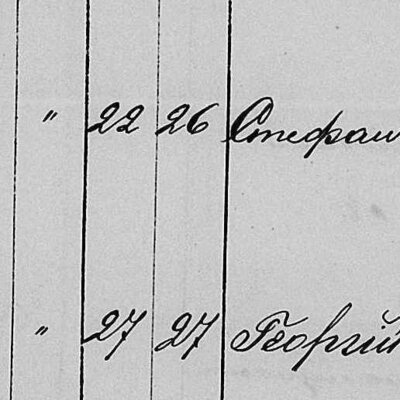 " 22 26 Стефан
" 27 27 Георгій